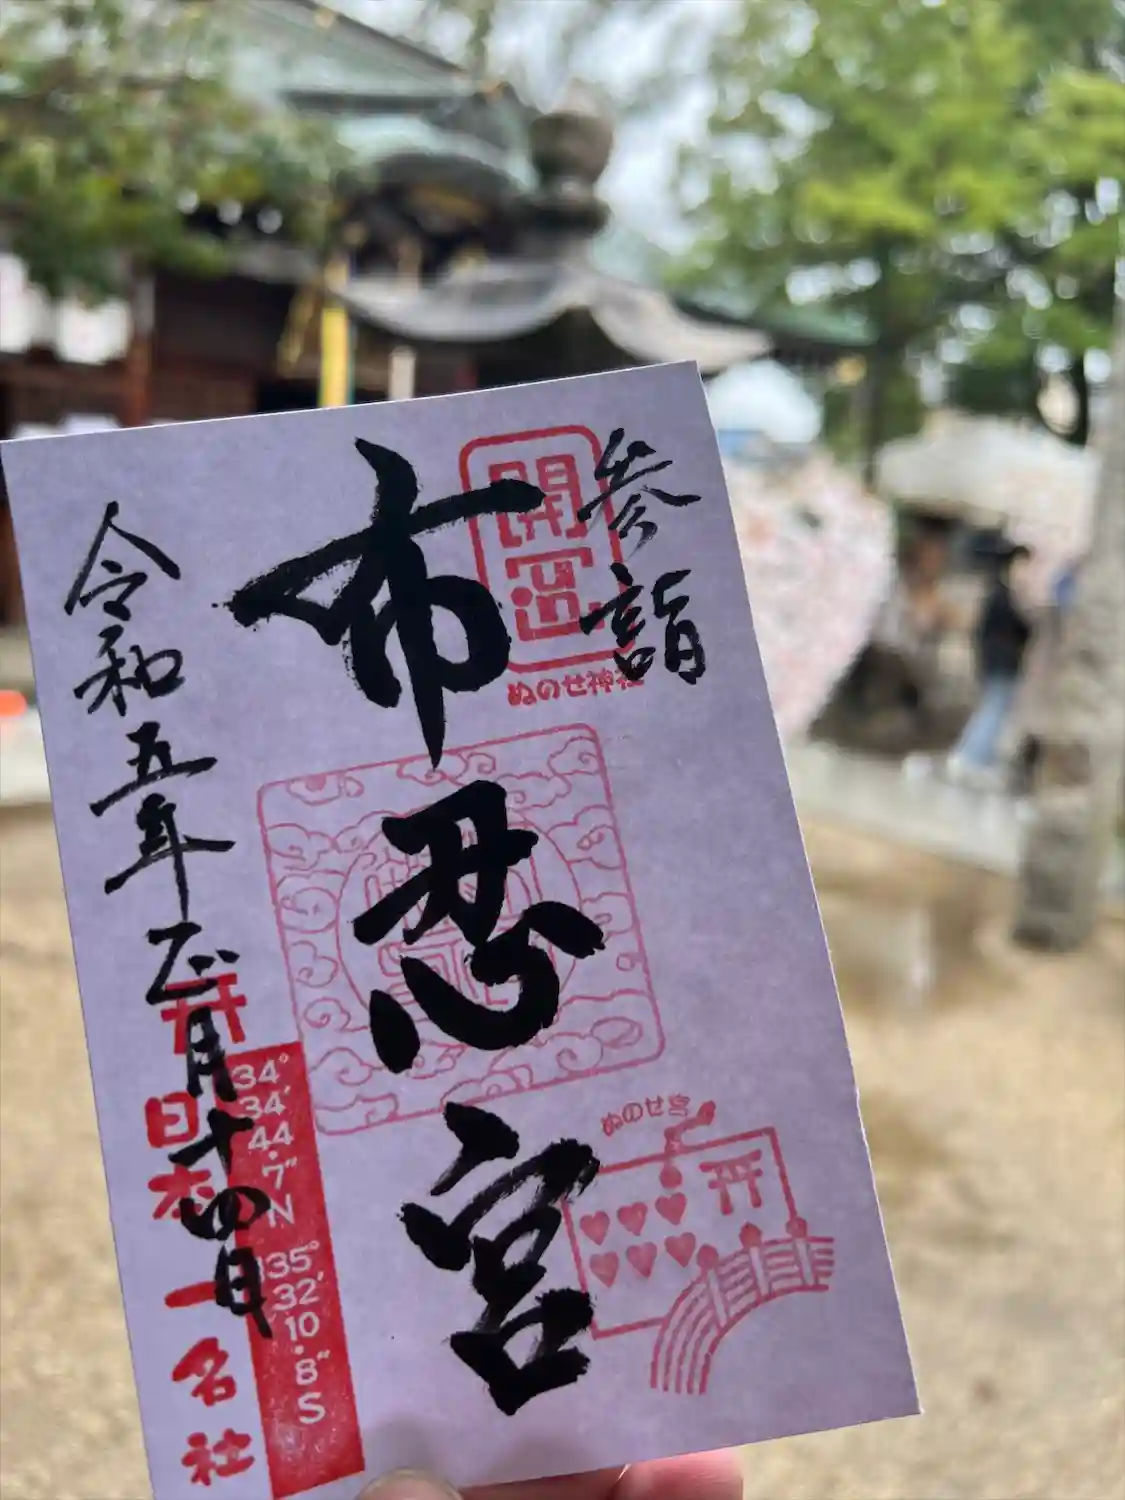 参詣
開運
ぬのせ神社
布忍宮
ぬのせ宮
令和五年正月十四日
日本一名社
34°
34′
44
.7″
N
135°
32′
10
.8″
S